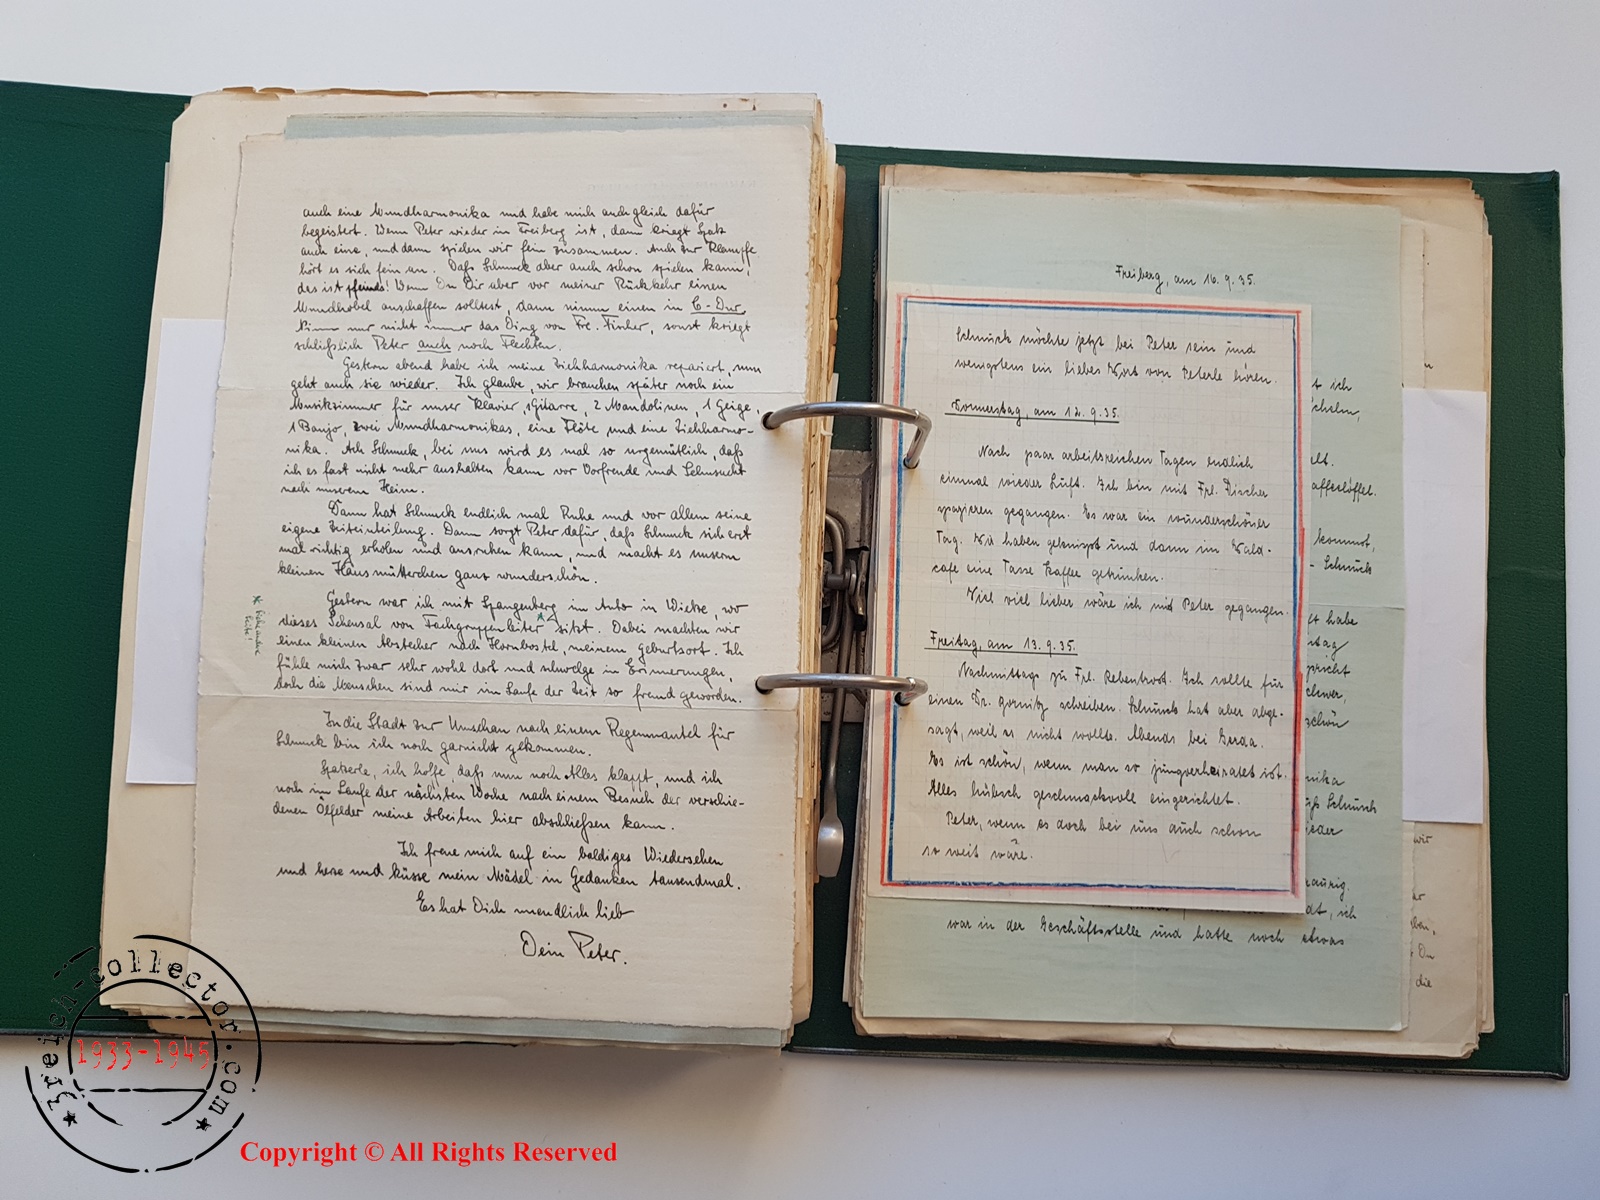 auch eine Mundharmonika und habe mich auch gleich dafür
begeistert. Wenn Peter wieder in Freiberg ist, dann kriegt Spatz
auch eine, und dann spielen wir fein zusammen. Auch zur Klampfe
hört es sich fein an. Daß Schmuck aber auch schon spielen kann,
das ist pfeinds! Wenn Du Dir aber vor meiner Rückkehr einen
Mundhobel anschaffen solltest, dann nimm einen in C-Dur.
Nimm nur nicht immer das Ding von Frl. Fischer, sonst kriegt
schließlich Peter auch noch Flechten.
Gestern abend habe ich meine Ziehharmonika repariert, nun
geht auch sie wieder. Ich glaube, wir brauchen später noch ein
Musikzimmer für unser Klavier, 1 Gitarre, 2 Mandolinen, 1 Geige,
1 Banjo, zwei Mundharmonikas, eine Flöte und eine Ziehharmo-
nika. Ach Schmuck, bei uns wird es mal so urgemütlich, daß
ich es fast nicht mehr aushalten kann vor Vorfreude und Sehnsucht
nach unserem Heim.
Dann hat Schmuck endlich mal Ruhe und vor allem seine
eigene Zeiteinteilung. Dann sorgt Peter dafür, daß Schmuck sich erst
mal richtig erholen und ausruhen kann, und macht es unserm
kleinen Hausmütterchen ganz wunderschön.
Gestern war ich mit Spangenberg im Auto in Wietze, wo
dieses Scheusal von Fachgruppenleiter sitzt. Dabei machten wir
einen kleinen Abstecher nach Hornbostel, meinem Geburtsort. Ich
fühle mich zwar sehr wohl dort und schwelge in Erinnerungen,
doch die Menschen sind mir im Laufe der Zeit so fremd geworden.
In die Stadt zur Umschau nach einem Regenmantel für
Schmuck bin ich noch garnicht gekommen.
Spatzerle, ich hoffe, daß nun noch Alles klappt, und ich
noch im Laufe der nächsten Woche nach einem Besuch der verschie-
denen Ölfelder meine Arbeiten hier abschließen kann.
Ich freue mich auf ein baldiges Wiedersehen
und herze und küsse mein Mädel in Gedanken tausendmal.
Es hat Dich unendlich lieb
Dein Peter.
Freiberg, am 16.9.35.
Schmuck möchte jetzt bei Peter sein und
wenigstens ein liebes Wort von Peterle hören.
Donnerstag, am 12.9.35.
Nach paar arbeitsreichen Tagen endlich
einmal wieder Luft. Ich bin mit Frl. Discher
spazieren gegangen. Es war ein wunderschöner
Tag. Wir haben geknipst und dann im Wald-
cafe eine Tasse Kaffee getrunken.
Viel viel lieber wäre ich mit Peter gegangen.
Freitag, am 13.9.35.
Nachmittags zu Frl. Rebentrost. Ich sollte für
einen Dr. Gornitz schreiben. Schmuck hat aber abge-
sagt, weil es nicht wollte. Abends bei Gerda.
Es ist schön, wenn man so jungverheiratet ist.
Alles hübsch geschmackvoll eingerichtet.
Peter, wenn es doch bei uns auch schon
so weit wäre.
war in der Geschäftsstelle und hatte noch etwas
3reich-collector.com
1933-1945
Copyright © All Rights Reserved